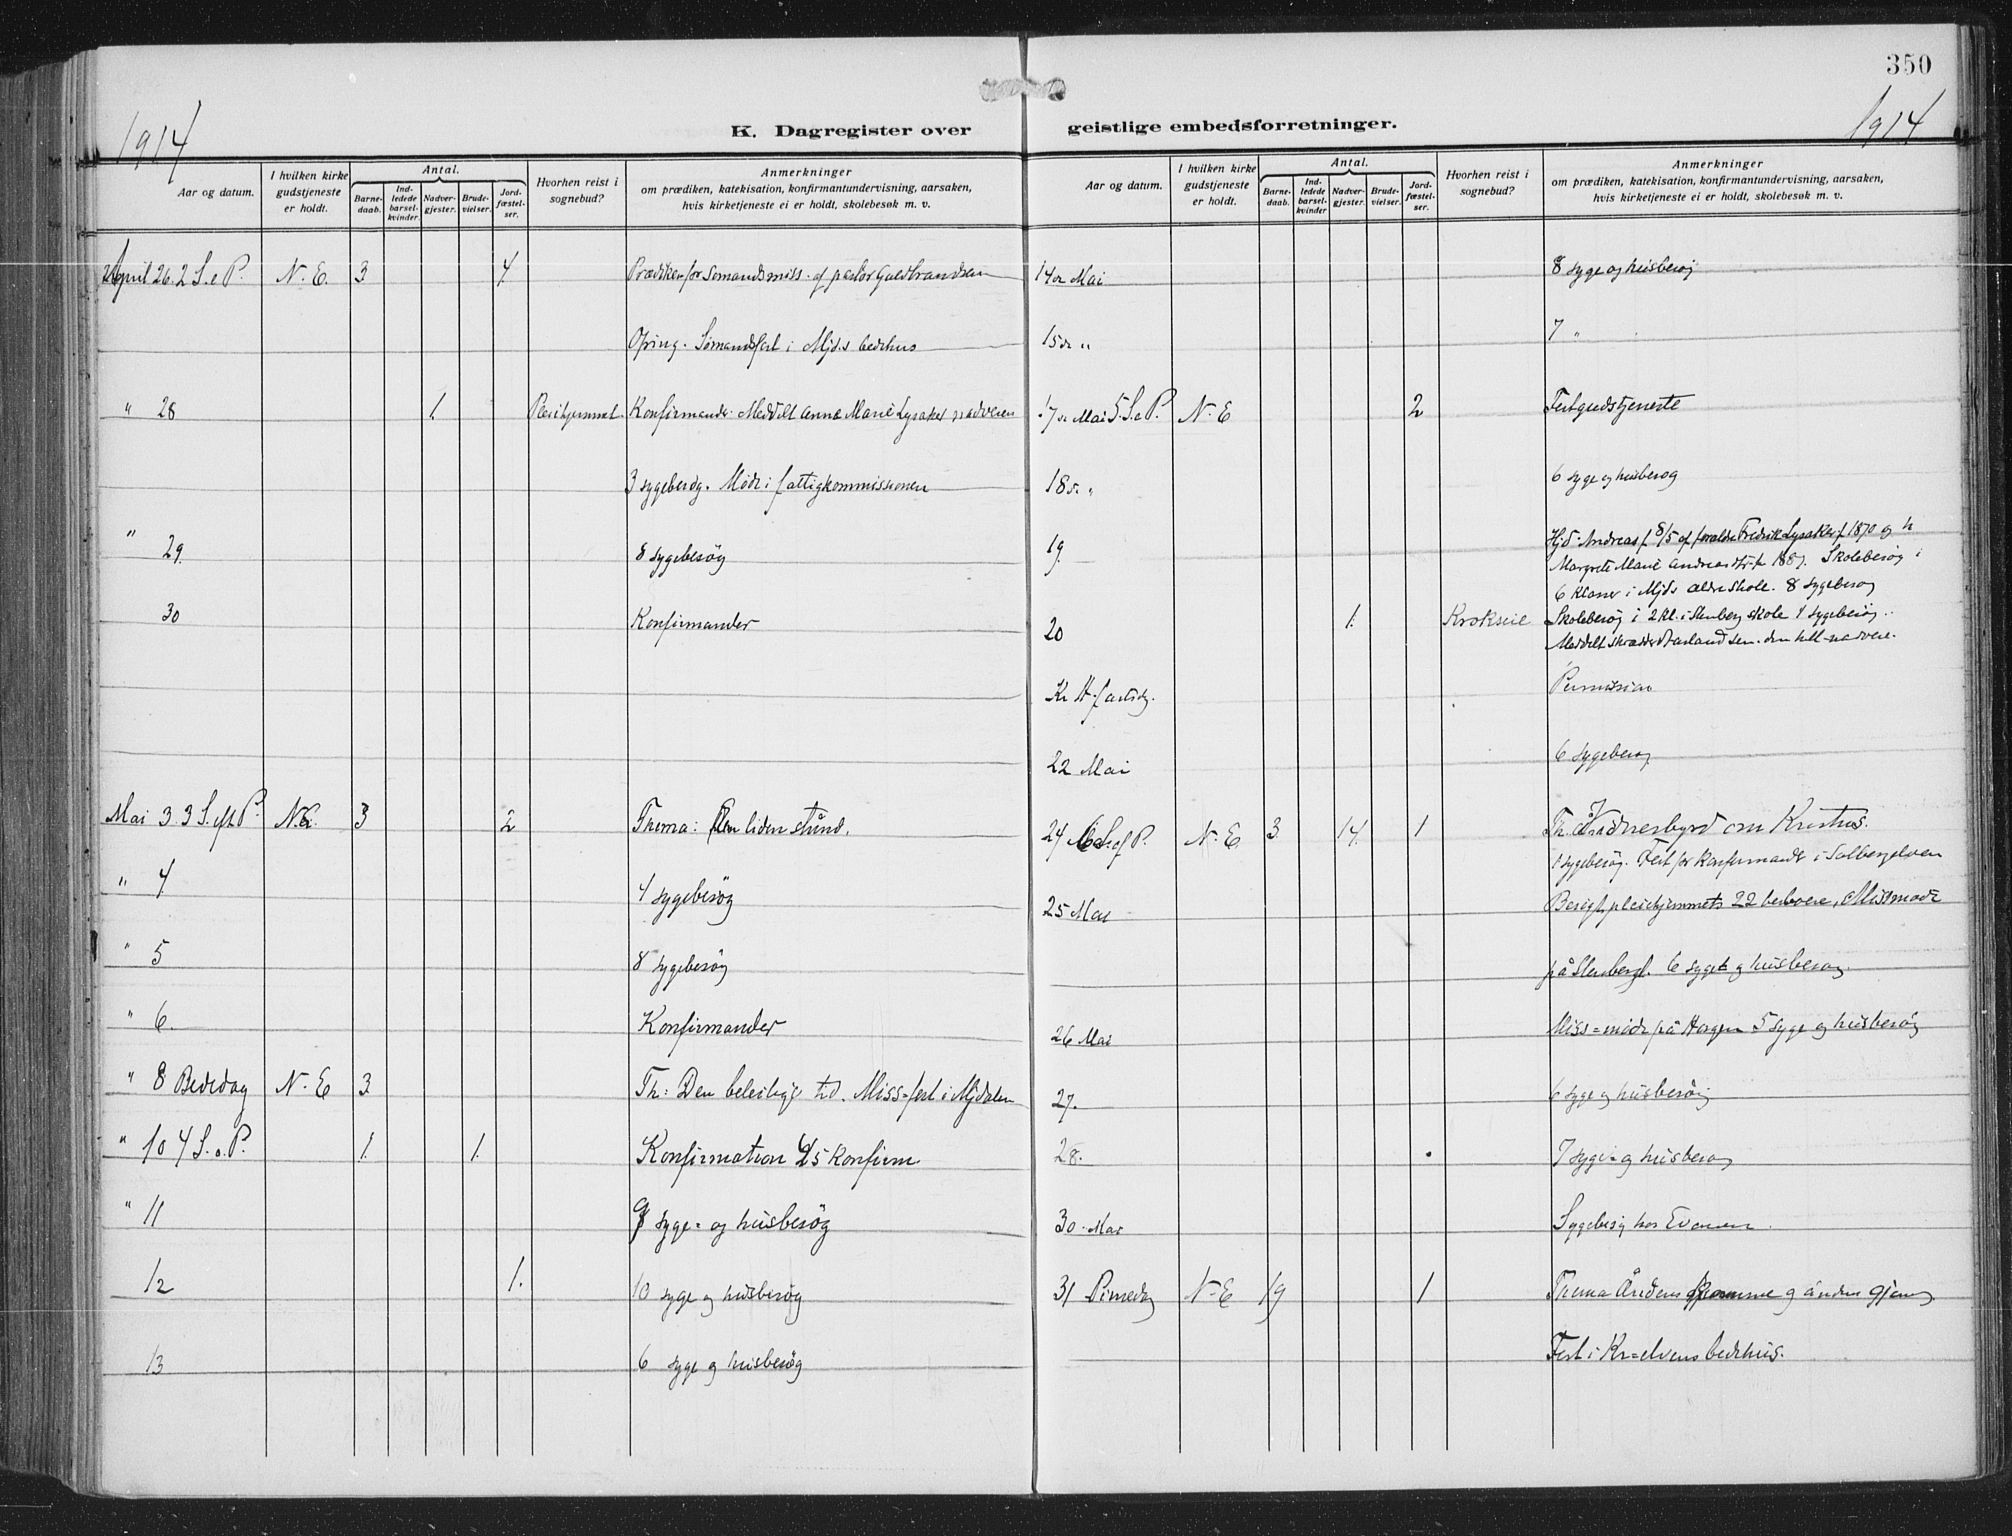 350
1914
K. Dagregister over
Aar og datum.
I hvilken kirke gudstjeneste er holdt.
Antal.
Barne-daab.
Ind-ledede barsel-kvinder
Nadver-gjester.
Brude-vielser.
Jord-fæstel-ser.
Hvorhen reist i sognebud?
Anmerkninger
om prædiken, katekisation, konfirmantundervisning, aarsaken,
hvis kirketjeneste ei er holdt, skolebesøk m. v.
April 26. 2 S. e P. N. E. 3 4. Prædiken for Sømandsmiss. af pastor Guldbrandsen
Ofring. Sømandsfest i Mjds bedehus
" 28 1. Pleiehjemmet Konfirmander. Meddelt Anna Marie Lysaker nadveren
3 sygebesøg. Møde i fattigkommissionen
" 29. 8 sygebesøg
30 Konfirmander
Mai 3. 3 S. eft P. N.E. 3 2 Thema: Den liden stund.
" 4 4 sygebesøg
" 5 8 sygebesøg
" 6. Konfirmander
" 8 Bededag N. E 3 Th: Den beleilige tid. Miss=fest i Mjdalen
" 10 4 S. e. P. 1. 1. Konfirmation 25 konfirm.
" 11 9 syge= og husbesøg
12 1. 10 syge og husbesøg
13 6 syge og husbesøg
1914
geistlige embedsforretninger.
Aar og datum.
I hvilken kirke gudstjeneste er holdt.
Antal.
Barne-daab.
Ind-ledede barsel-kvinder
Nadver-gjester.
Brude-vielser.
Jord-fæstel-ser.
Hvorhen reist i sognebud?
Anmerkninger
om prædiken, katekisation, konfirmantundervisning, aarsaken,
hvis kirketjeneste ei er holdt, skolebesøk m. v.
14de Mai 8 syge og husbesøg
15de " 7 "
17de Mai 5 S. e P. N. E 2 Festgudstjeneste
18de " 6 syge og husbesøg
19. Hjd. Andreas f. 8/5 af foreldre Fredrik Lysaker f. 1870 og h
Margrete Marie Andreasdtr. f. 1887. Skolebesøg i
6 klasser i Mjds ældre skole. 8 sygebesøg
20 1. Krokseie Skolebesøg i 2 kl. i Stenberg skole 4 sygebesøg.
Meddelt den hell. nadvere.
Kr H.fartsdg. Permission
22 Mai 6 sygebesøg
24 6 S. ef P. N. E. 3 14. 1 Th. Vidnesbyrd om Kristus.
1 sygebesøg. Fest for konfirmande i Solbergelven
25 Mai Besøgt pleiehjemmets 22 beboere, Missmøde
på Stenbergl. 6 syge og husbesøg.
26 Mai Miss=møde på Hagen 5 syge og husbesøg
27. 6 syge og husbesøg
28. 7 syge= og husbesøg
30. Mai Sygebesøg hos Evensen.
31 Pinsedag N. E 19 1 Thema Åndens komme og åndens gjerning
Fest i Kr=elvens bedehus.